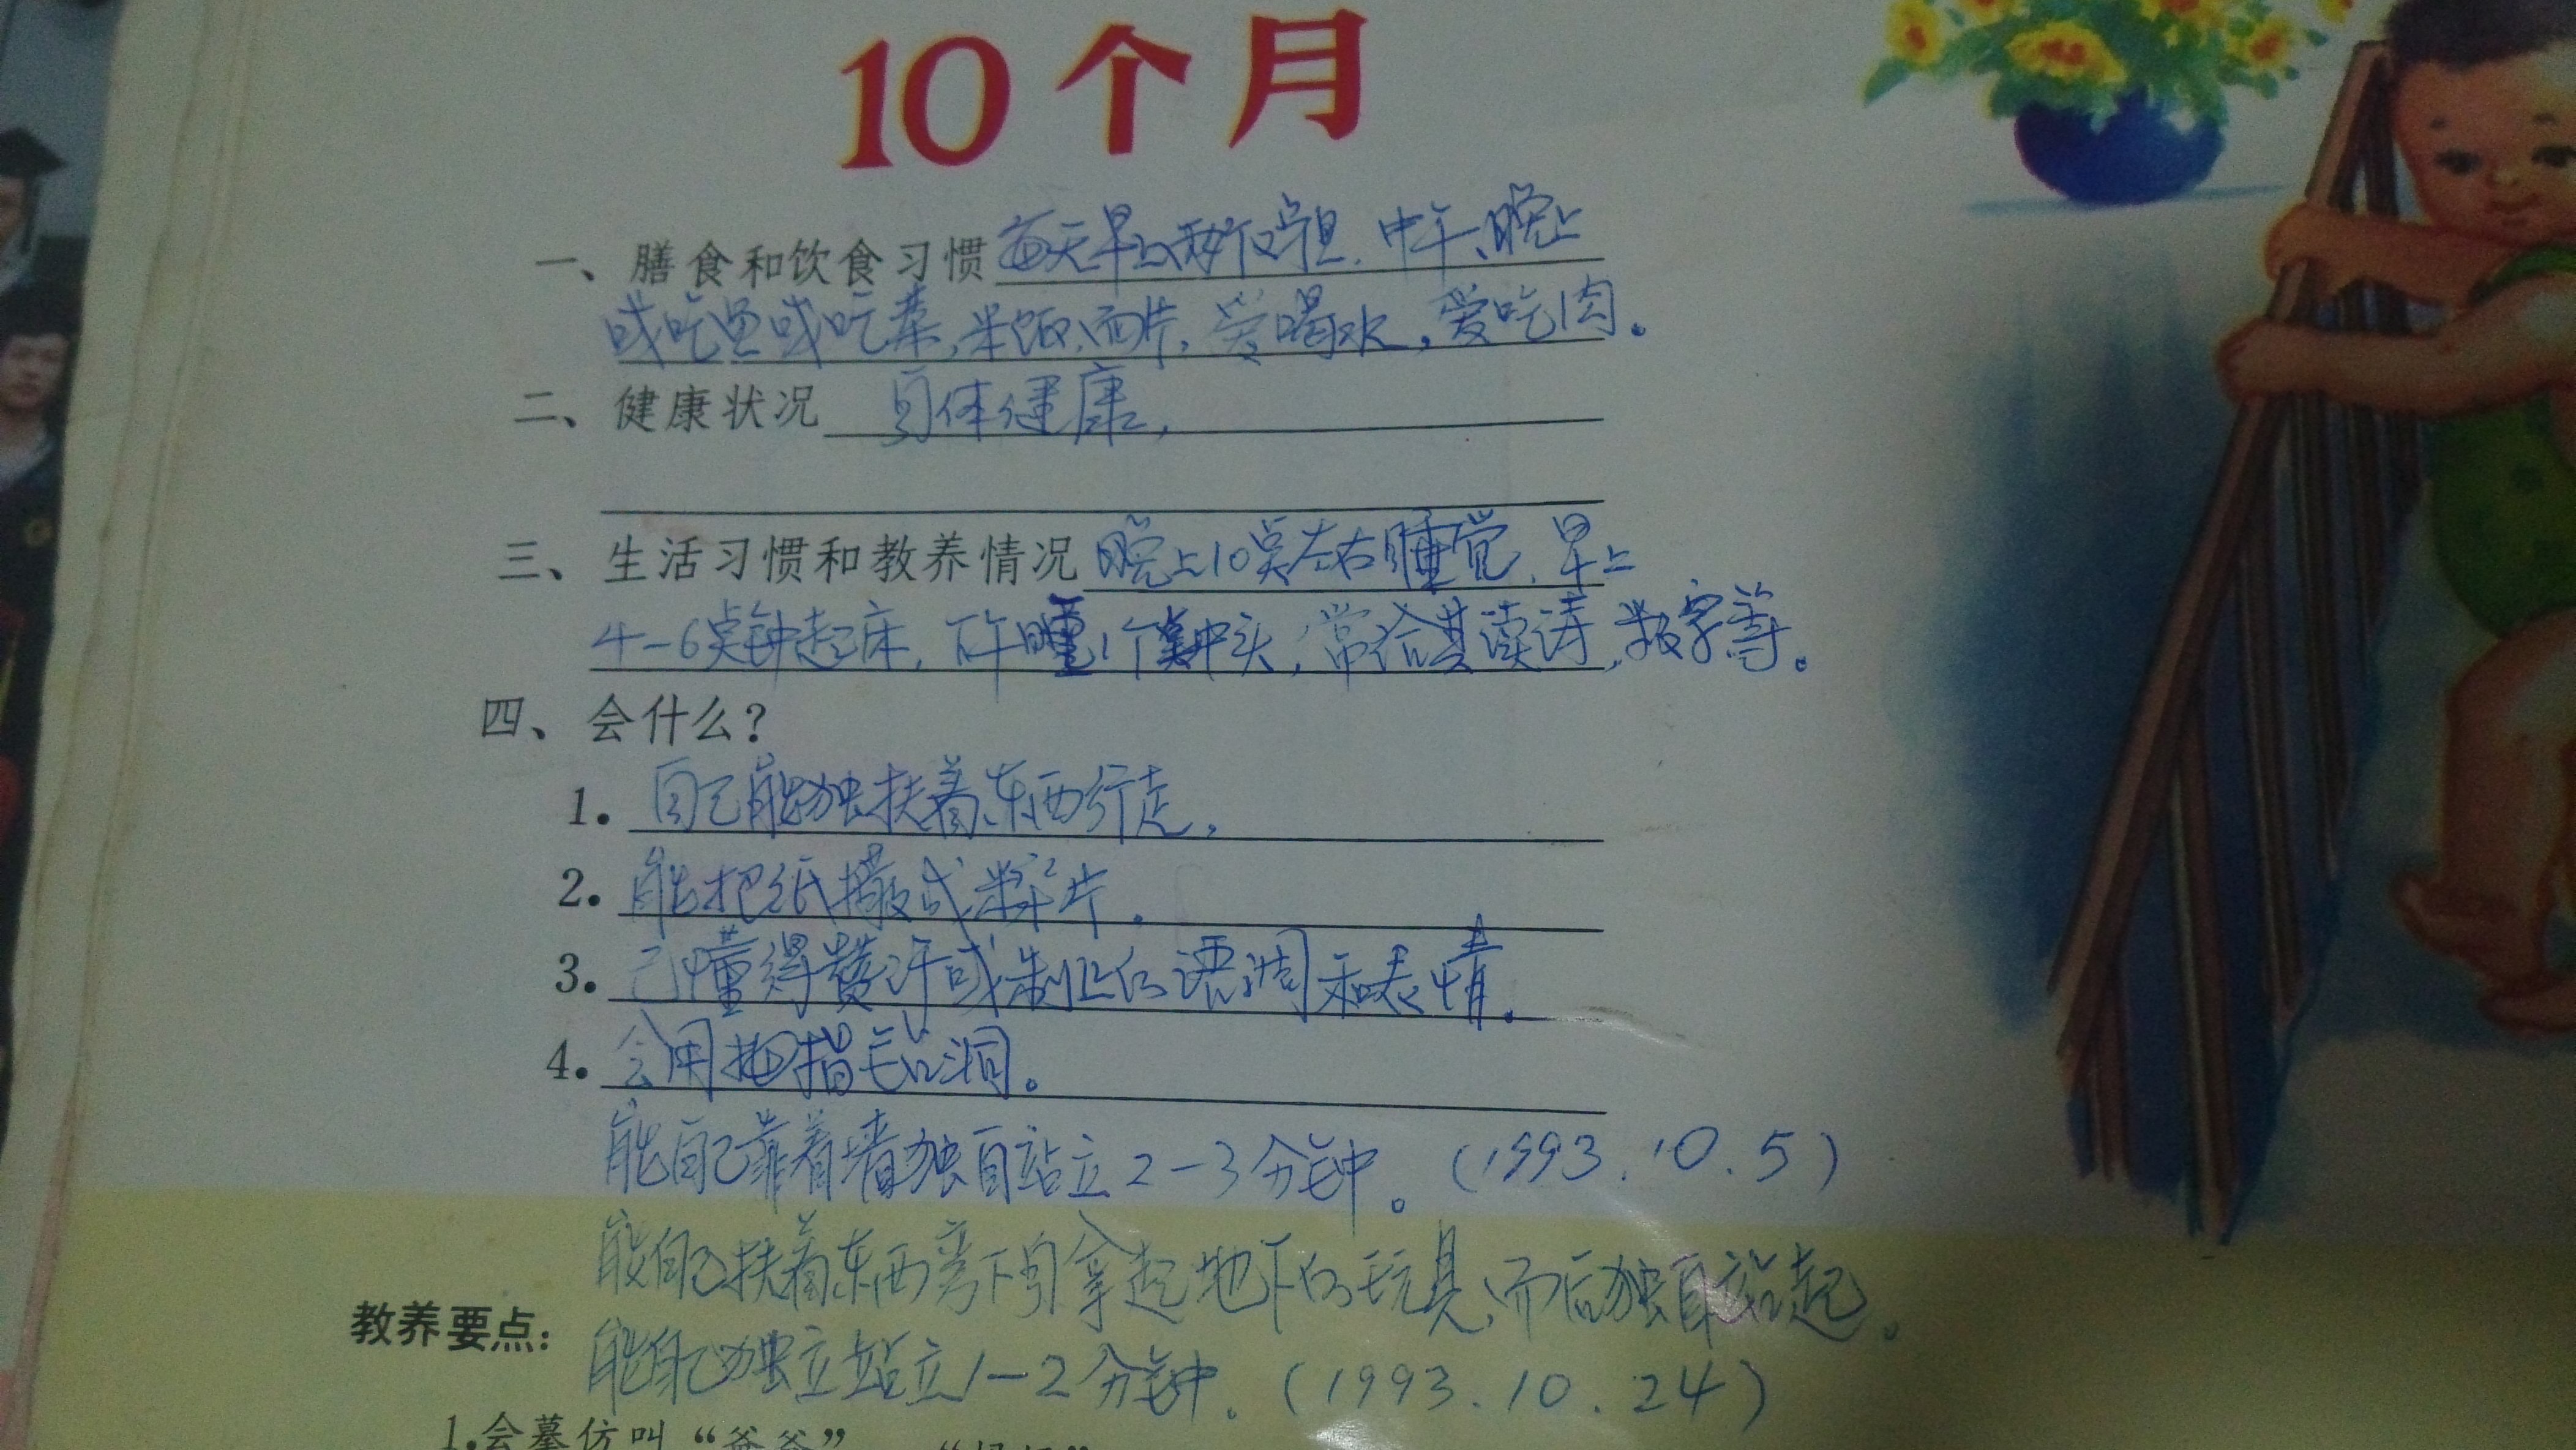 10个月
一、膳食和饮食习惯 每天早上两个鸡旦.中午、晚上
或吃鱼或吃菜,米饭、面片,爱喝水,爱吃肉。
二、健康状况 身体健康,
三、生活习惯和教养情况 晚上10点左右睡觉,早上
4-6点钟起床,下午睡1个钟头,常给其读诗,数字等。
四、会什么?
1. 自己能独扶着东西行走,
2. 能把纸撒成碎片.
3. 已懂得赞许或制止的语调和表情.
4. 会用拇指钻洞。
能自己靠着墙独自站立2-3分钟。(1993.10.5)
能自己扶着东西弯下身拿起地下的玩具,而后独自站起。
教养要点:
能自己独立站立1-2分钟.(1993.10.24)
1.会摹仿叫“爸爸”